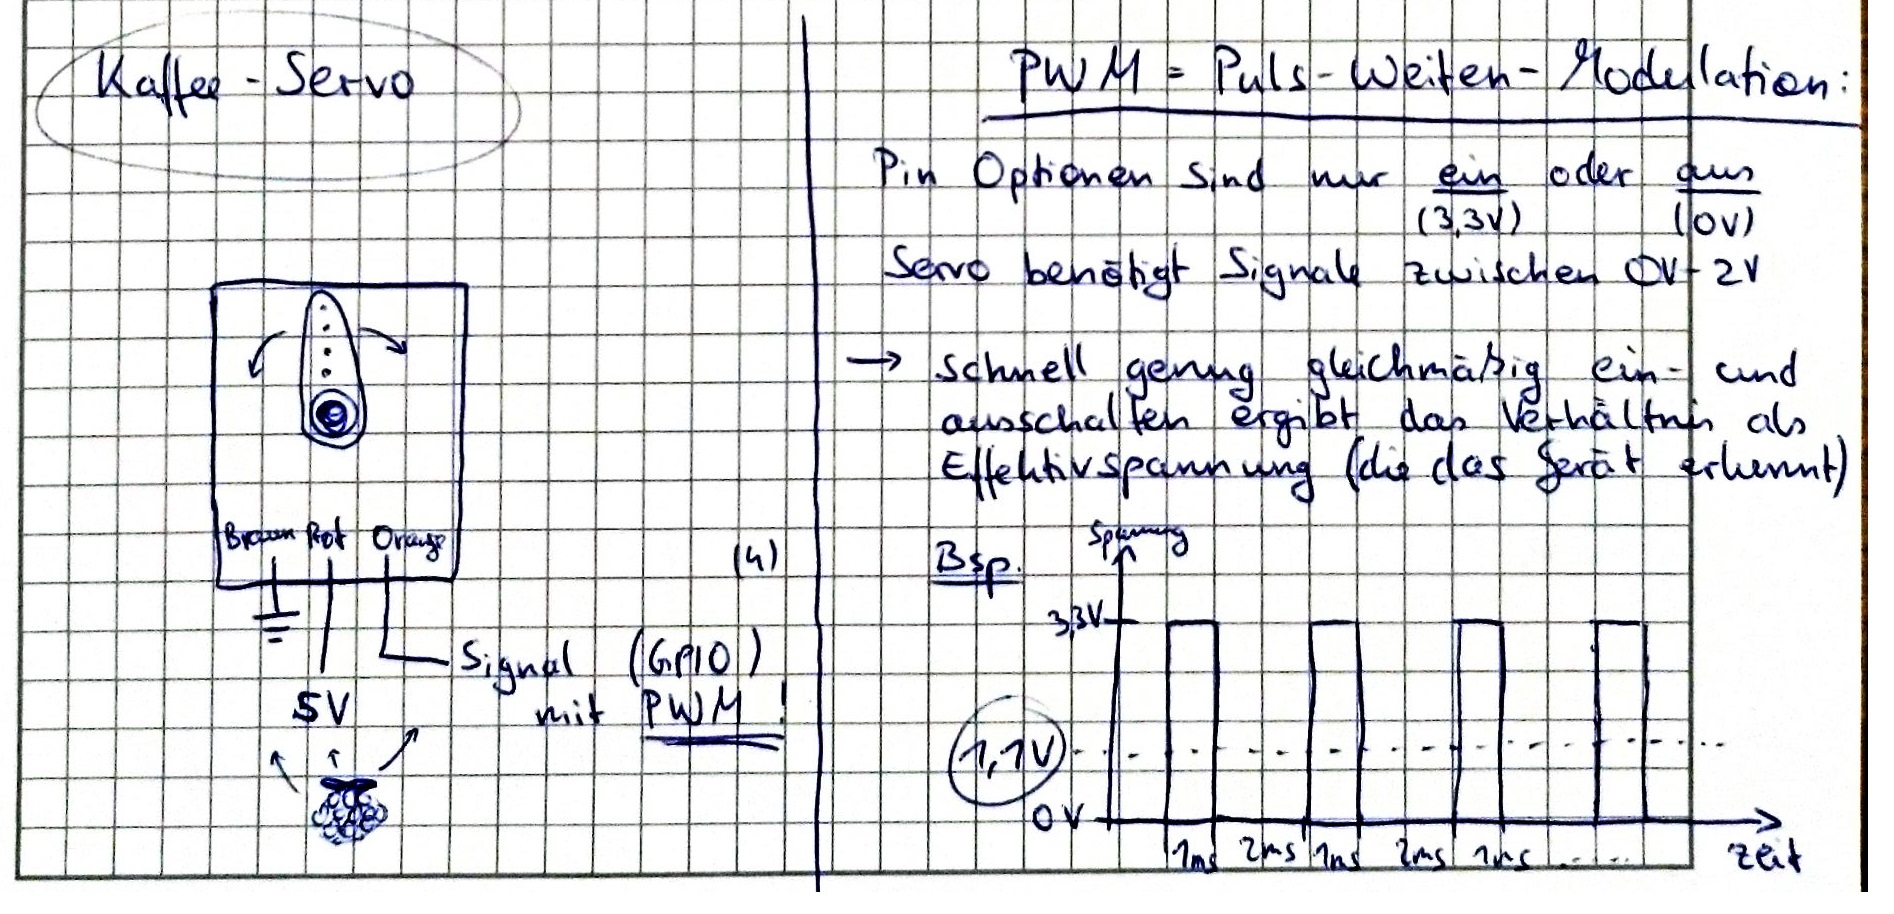 Kaffee - Servo
Braun Rot Orange
(4)
Signal (GPIO)
mit PWM!
5V
PWM = Puls-Weiten-Modulation:
Pin Optionen sind nur ein oder aus
(3,3V) (0V)
Servo benötigt Signale zwischen 0V-2V
→ schnell genug gleichmäßig ein- und
ausschalten ergibt das Verhältnis als
Effektivspannung (die das Gerät erkennt)
Bsp.
Spannung
3,3V
1,1V
0V
1ms 2ms 1ms 2ms 1ms ......
Zeit